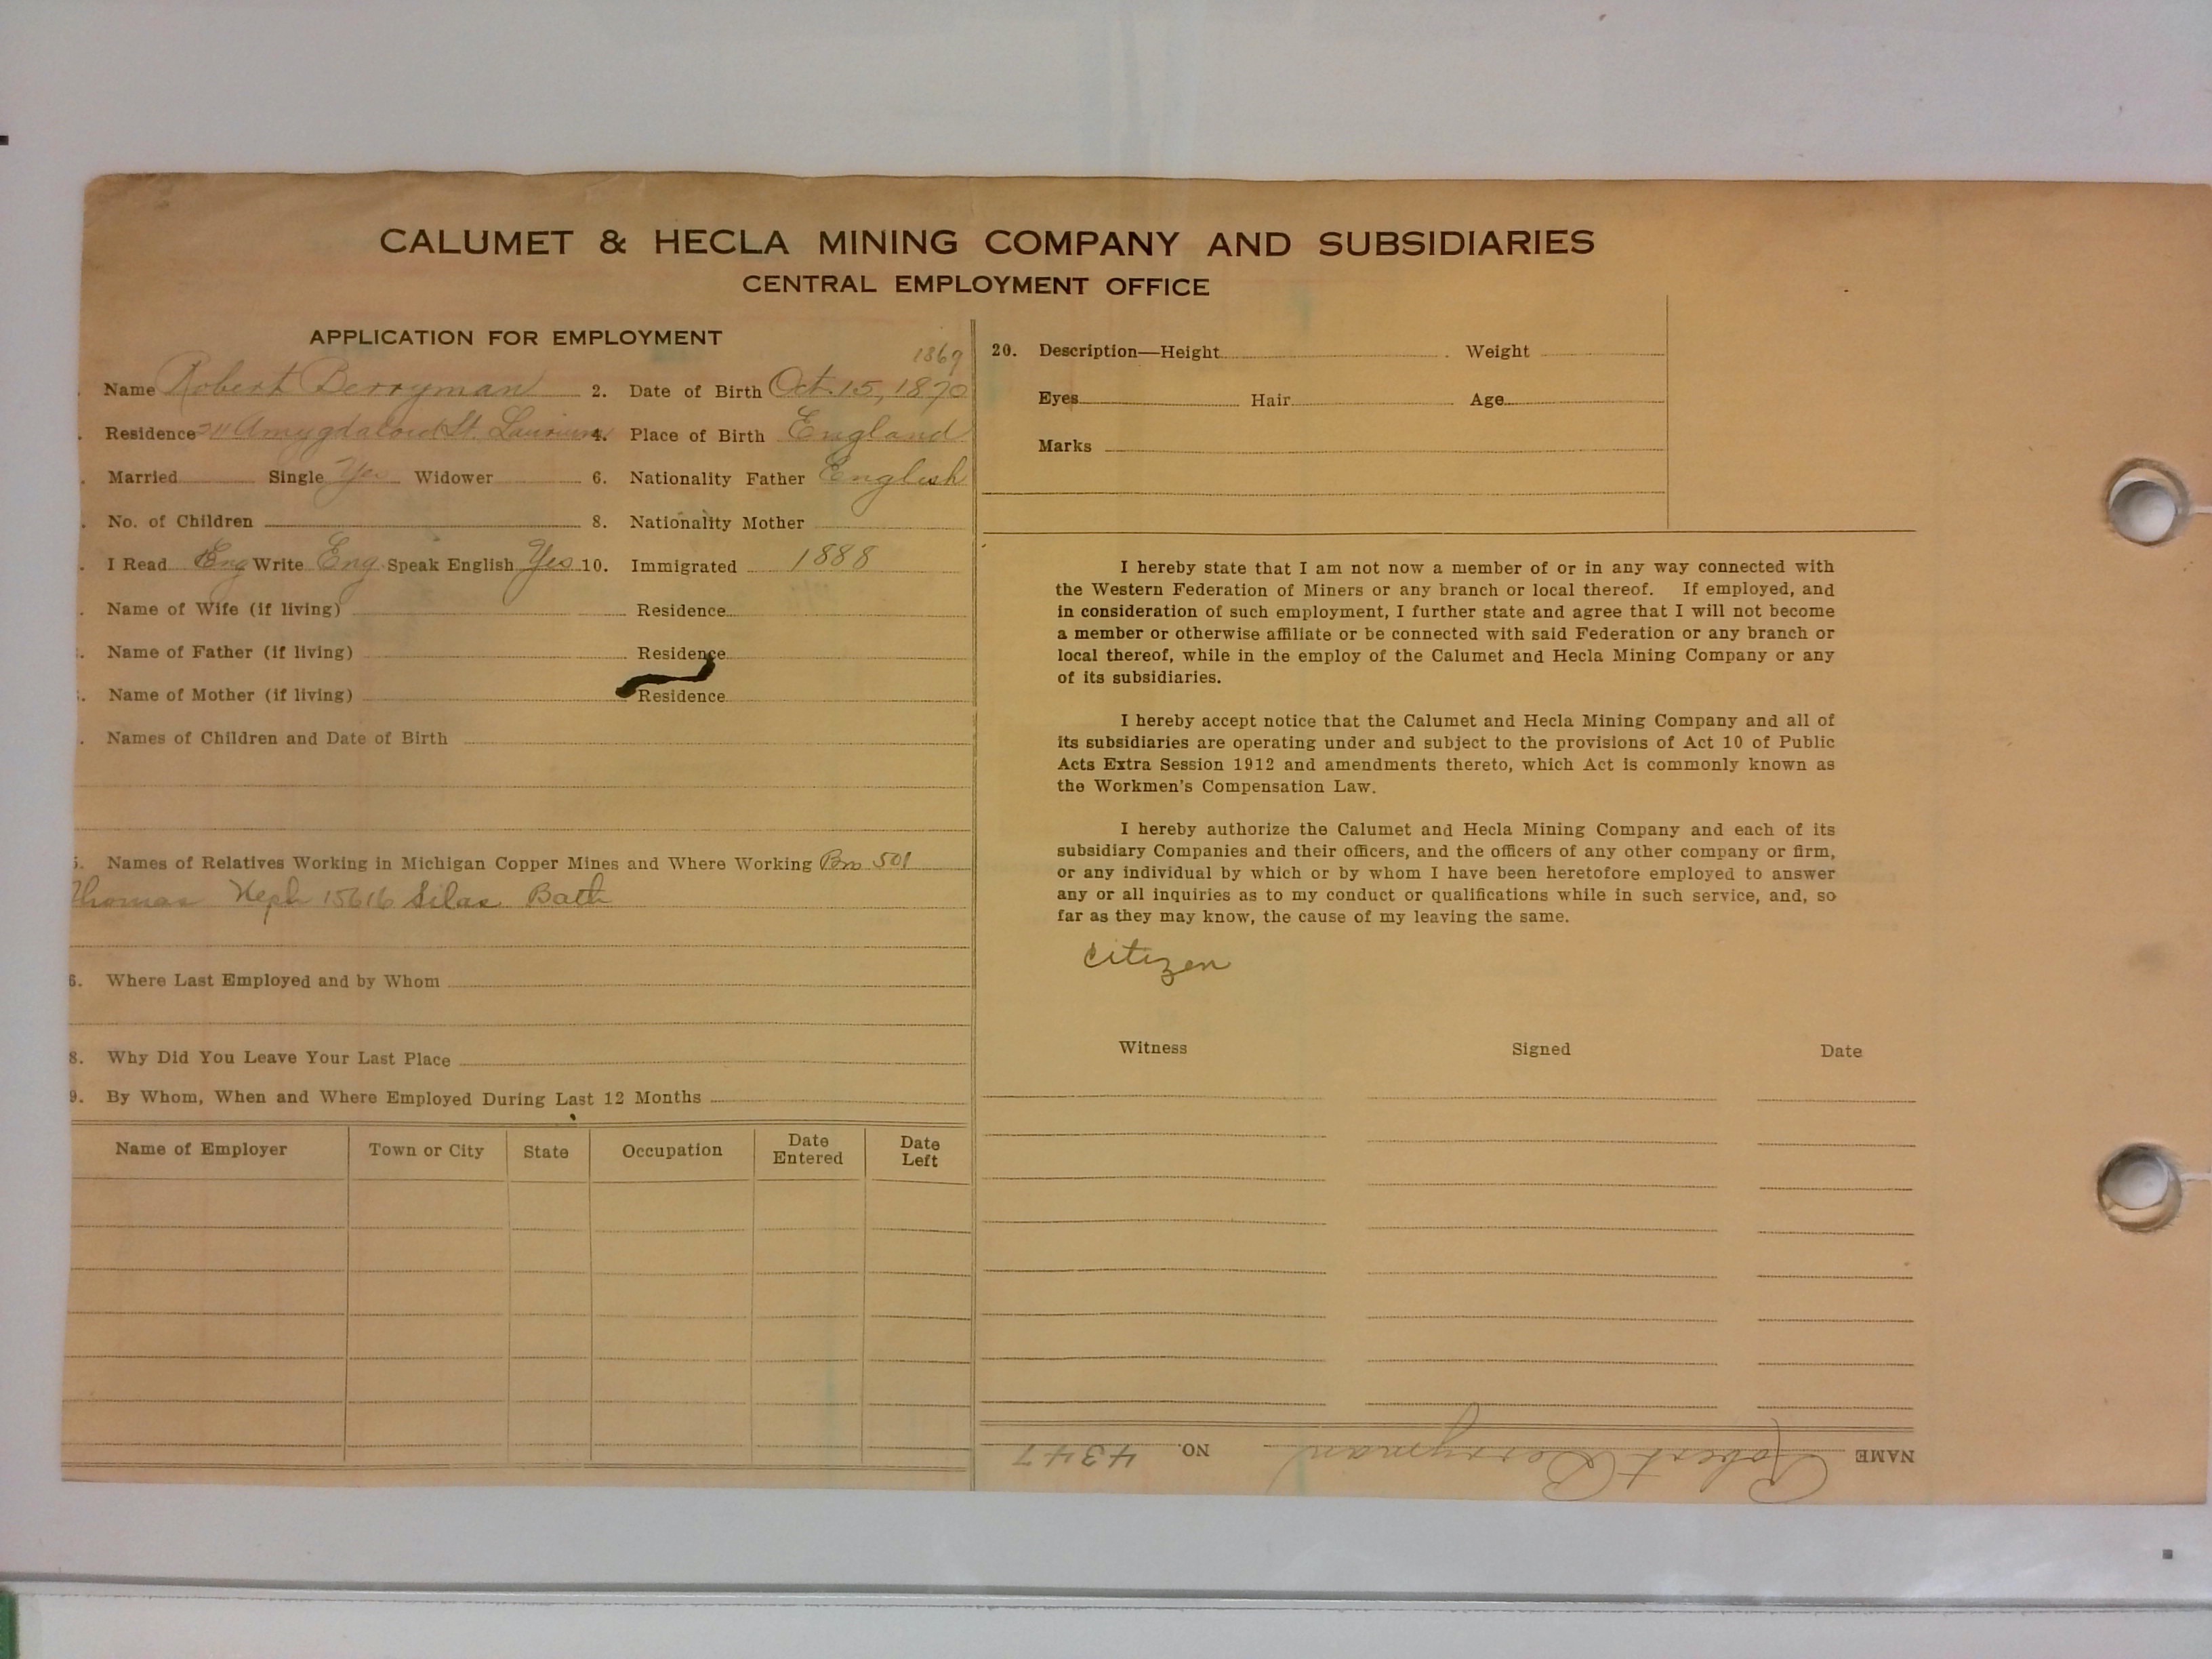 CALUMET & HECLA MINING COMPANY AND SUBSIDIARIES
CENTRAL EMPLOYMENT OFFICE
APPLICATION FOR EMPLOYMENT
1869
Name Robert Berryman 2. Date of Birth Oct. 15, 1870
Residence Amygdaloid St. Laurium 4. Place of Birth England
Married Single Yes Widower 6. Nationality Father English
No. of Children 8. Nationality Mother
I Read Eng Write Eng. Speak English Yes 10. Immigrated 1888
Name of Wife (if living) Residence
Name of Father (if living) Residence
Name of Mother (if living) Residence
Names of Children and Date of Birth
5. Names of Relatives Working in Michigan Copper Mines and Where Working Bro 501
Thomas Neph 15616 Silas Bath
6. Where Last Employed and by Whom
8. Why Did You Leave Your Last Place
9. By Whom, When and Where Employed During Last 12 Months
Name of Employer Town or City State Occupation Date Entered Date Left
20. Description—Height Weight
Eyes Hair Age
Marks
I hereby state that I am not now a member of or in any way connected with
the Western Federation of Miners or any branch or local thereof. If employed, and
in consideration of such employment, I further state and agree that I will not become
a member or otherwise affiliate or be connected with said Federation or any branch or
local thereof, while in the employ of the Calumet and Hecla Mining Company or any
of its subsidiaries.
I hereby accept notice that the Calumet and Hecla Mining Company and all of
its subsidiaries are operating under and subject to the provisions of Act 10 of Public
Acts Extra Session 1912 and amendments thereto, which Act is commonly known as
the Workmen's Compensation Law.
I hereby authorize the Calumet and Hecla Mining Company and each of its
subsidiary Companies and their officers, and the officers of any other company or firm,
or any individual by which or by whom I have been heretofore employed to answer
any or all inquiries as to my conduct or qualifications while in such service, and, so
far as they may know, the cause of my leaving the same.
citizen
Witness Signed Date
NAME Robert Berryman NO. 4347